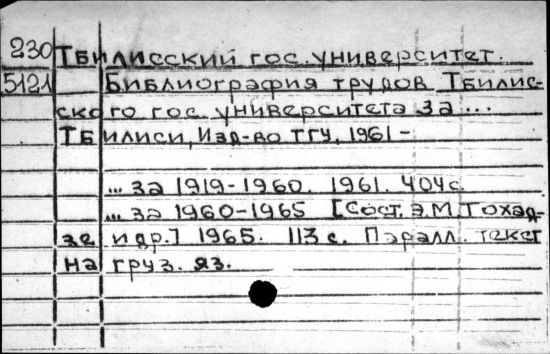 230 Тбилисский гос. университет.
5121 Библиография трудов Тбилис-
ского гос. университета за ...
Тбилиси, Изд-во ТГУ, 1961 -
... за 1919-1960. 1961. 404 с.
... за 1960-1965 [Сост. Э.М. Тохад-
зе и др.] 1965. 113 с. Паралл. текст
на груз. яз.